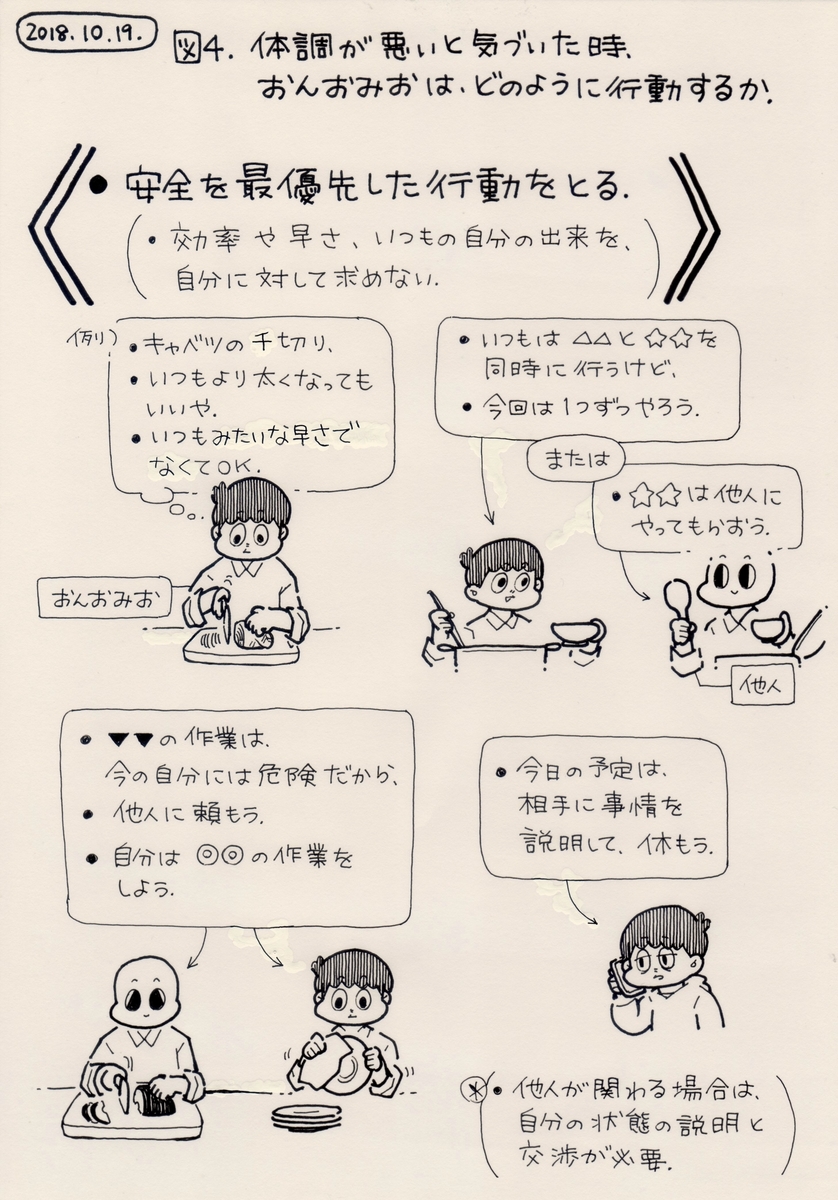 2018.10.19.
図4. 体調が悪いと気づいた時、
おんおみおは、どのように行動するか。
●安全を最優先した行動をとる。
(・効率や早さ、いつもの自分の出来を、
自分に対して求めない。)
例)・キャベツの千切り、
・いつもより太くなっても
いいや。
・いつもみたいな早さで
なくてOK.
・いつもは△△と☆☆を
同時に行うけど、
・今回は1つずつやろう。
または
・☆☆は他人に
やってもらおう。
おんおみお
他人
・▼▼の作業は、
今の自分には危険だから、
・他人に頼もう。
・自分は◎◎の作業を
しよう。
・今日の予定は、
相手に事情を
説明して、休もう。
※(・他人が関わる場合は、
自分の状態の説明と
交渉が必要。)